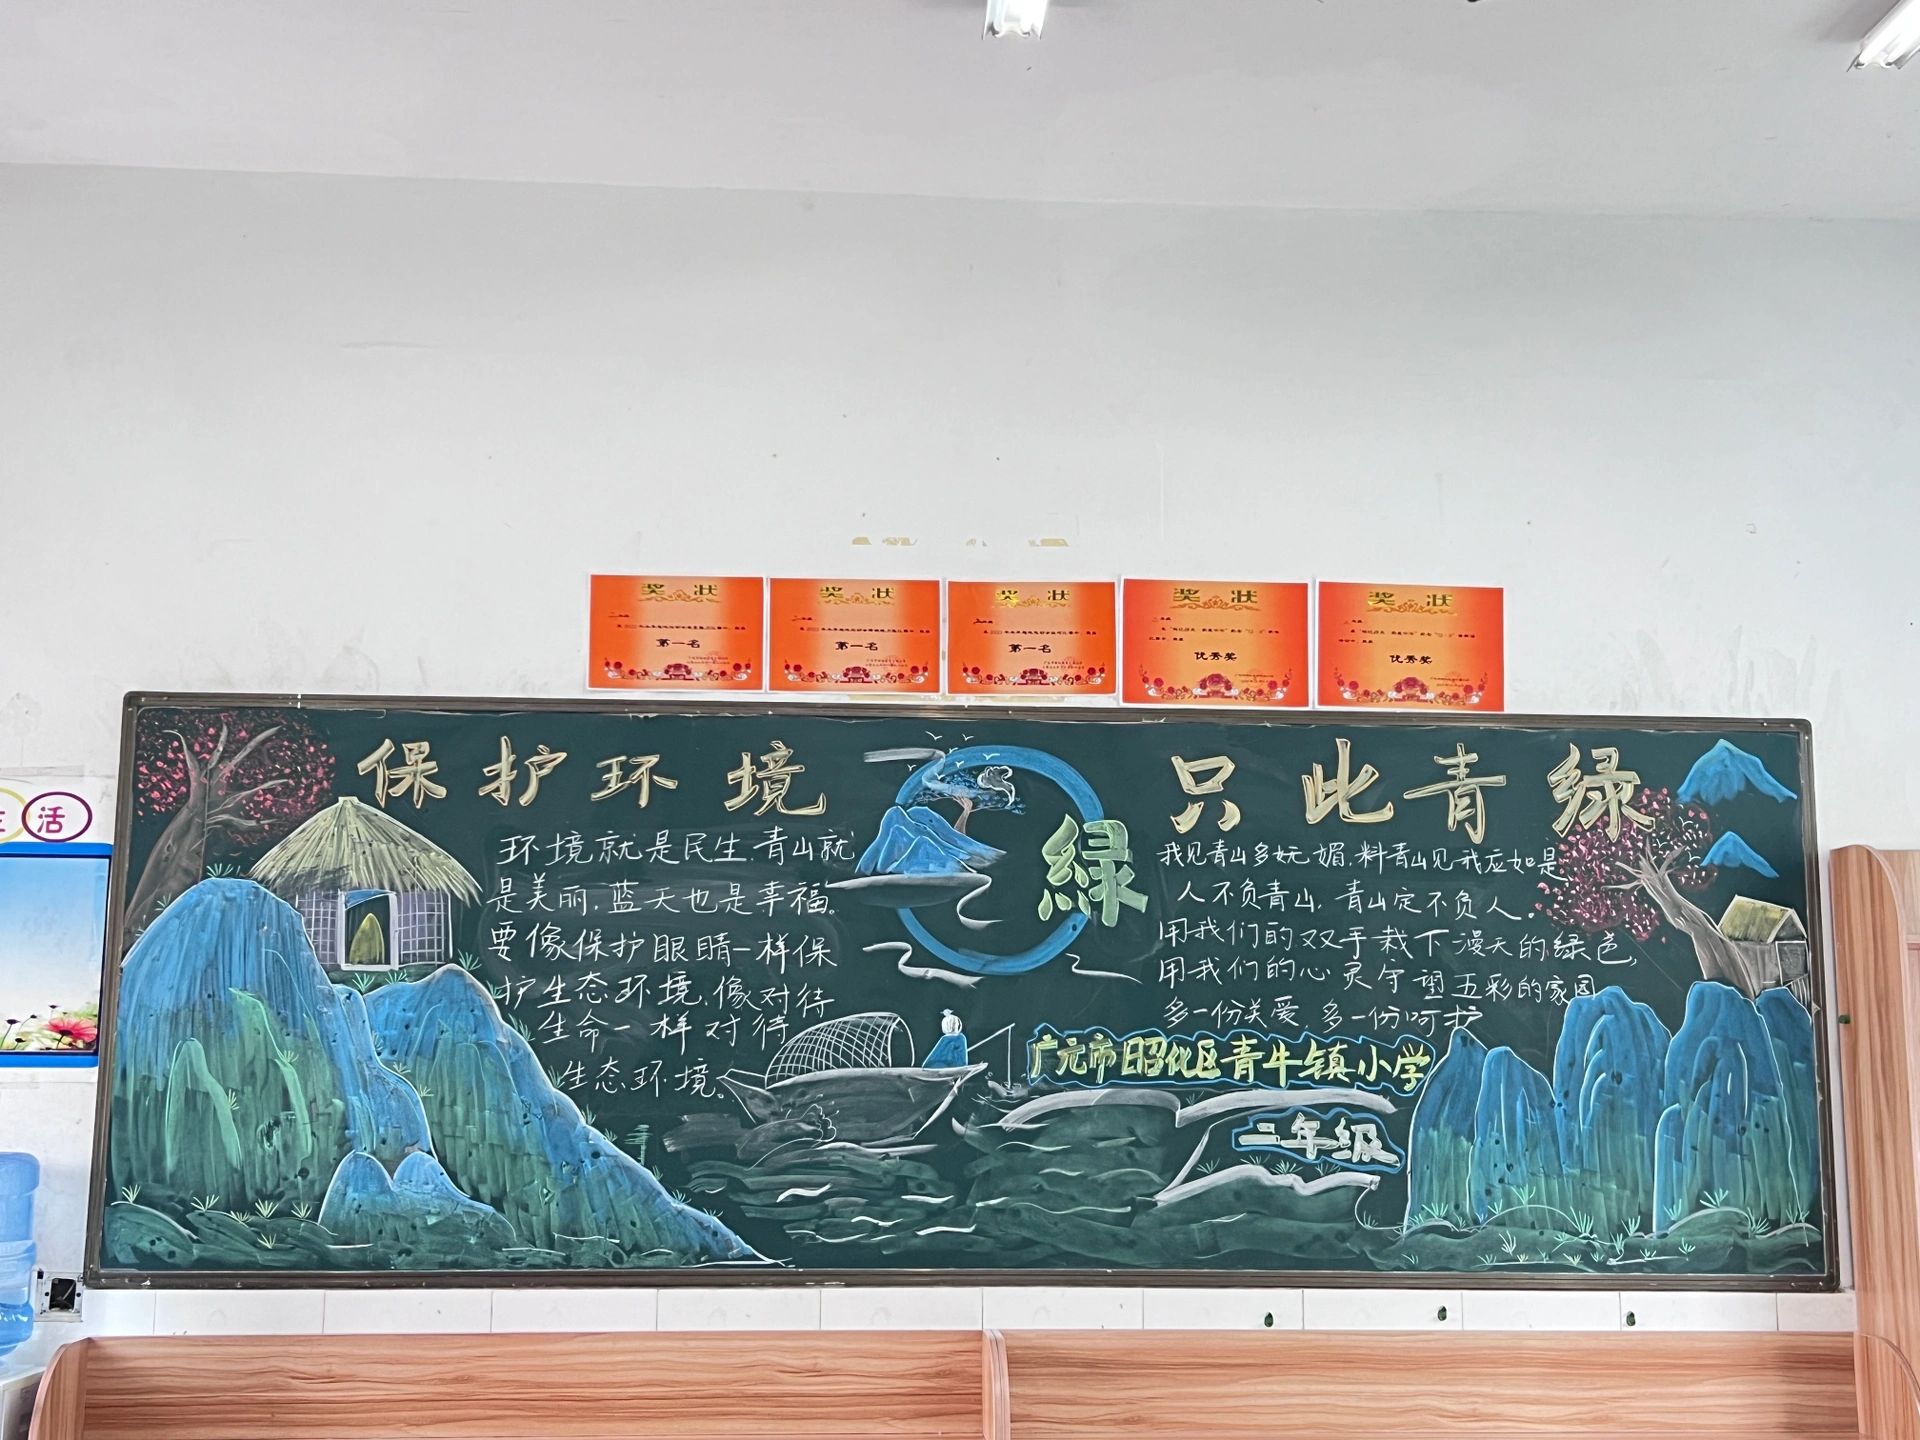 奖状
第一名
奖状
第一名
奖状
第一名
奖状
优秀奖
奖状
优秀奖
活
保护环境
环境就是民生,青山就
是美丽,蓝天也是幸福。
要像保护眼睛一样保
护生态环境,像对待
生命一样对待
生态环境。
綠
只此青绿
我见青山多妩媚,料青山见我应如是
人不负青山,青山定不负人。
用我们的双手栽下漫天的绿色,
用我们的心灵守望五彩的家园
多一份关爱,多一份呵护
广元市昭化区青牛镇小学
二年级